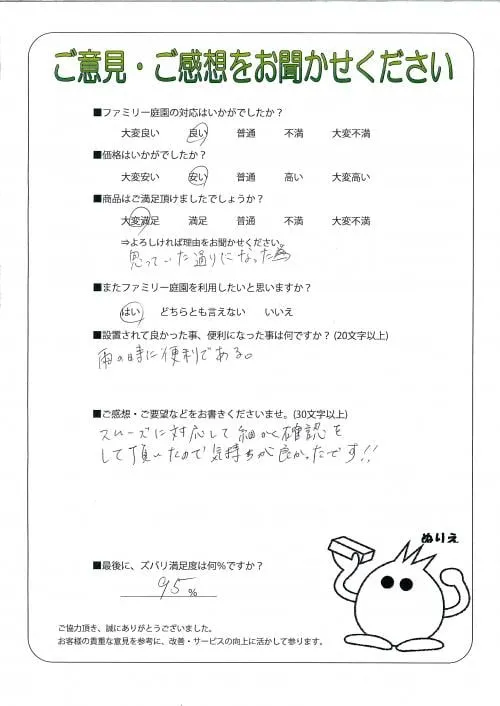 ご意見・ご感想をお聞かせください
■ファミリー庭園の対応はいかがでしたか？
大変良い 良い 普通 不満 大変不満
■価格はいかがでしたか？
大変安い 安い 普通 高い 大変高い
■商品はご満足頂けましたでしょうか？
大変満足 満足 普通 不満 大変不満
⇒よろしければ理由をお聞かせください。
思っていた通りになった為
■またファミリー庭園を利用したいと思いますか？
はい どちらとも言えない いいえ
■設置されて良かった事、便利になった事は何ですか？(20文字以上)
雨の時に便利である。
■ご感想・ご要望などをお書きくださいませ。(30文字以上)
スムーズに対応して細かく確認を
して頂いたので気持ちが良かったです!!
ぬりえ
■最後に、ズバリ満足度は何%ですか？
95 %
ご協力頂き、誠にありがとうございました。
お客様の貴重な意見を参考に、改善・サービスの向上に活かして参ります。